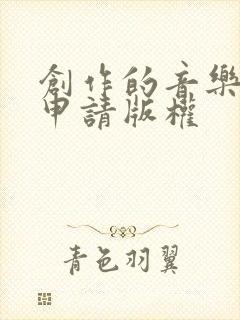 創作的音樂
申請版權
青色羽翼